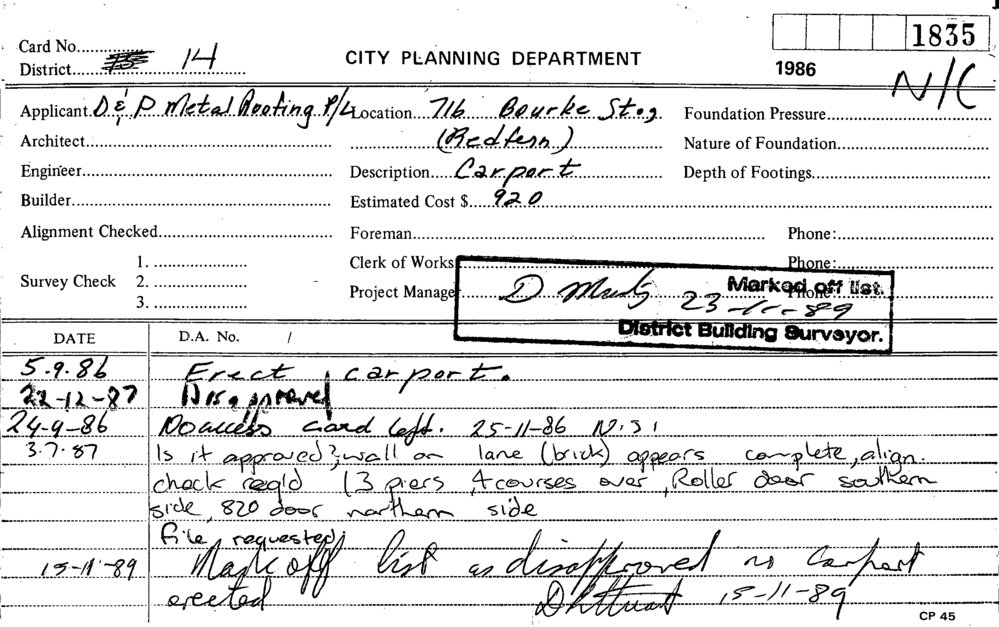 Card No.............. 1835
District........... 14 CITY PLANNING DEPARTMENT 1986 N/C
Applicant D & P Metal Roofing P/L Location 716 Bourke St Foundation Pressure
Architect (Redfern) Nature of Foundation
Engineer Description Carport Depth of Footings
Builder Estimated Cost $ 920
Alignment Checked Foreman Phone:
1. Clerk of Works Phone:
Survey Check 2. Project Manager Phone
3.
Marked off list.
D 23-11-89
District Building Surveyor.
DATE D.A. No. /
5.9.86 Erect carport.
22-12-87 Disapproved
24-9-86 No access card left. 25-11-86
3.7.87 Is it approved?; wall on lane (brick) appears complete, align.
check req'd (3 piers, 4 courses over, Roller door southern
side, 820 door northern side
file requested)
15-11-89 Mark off list as disapproved no carport
erected 15-11-89
CP 45